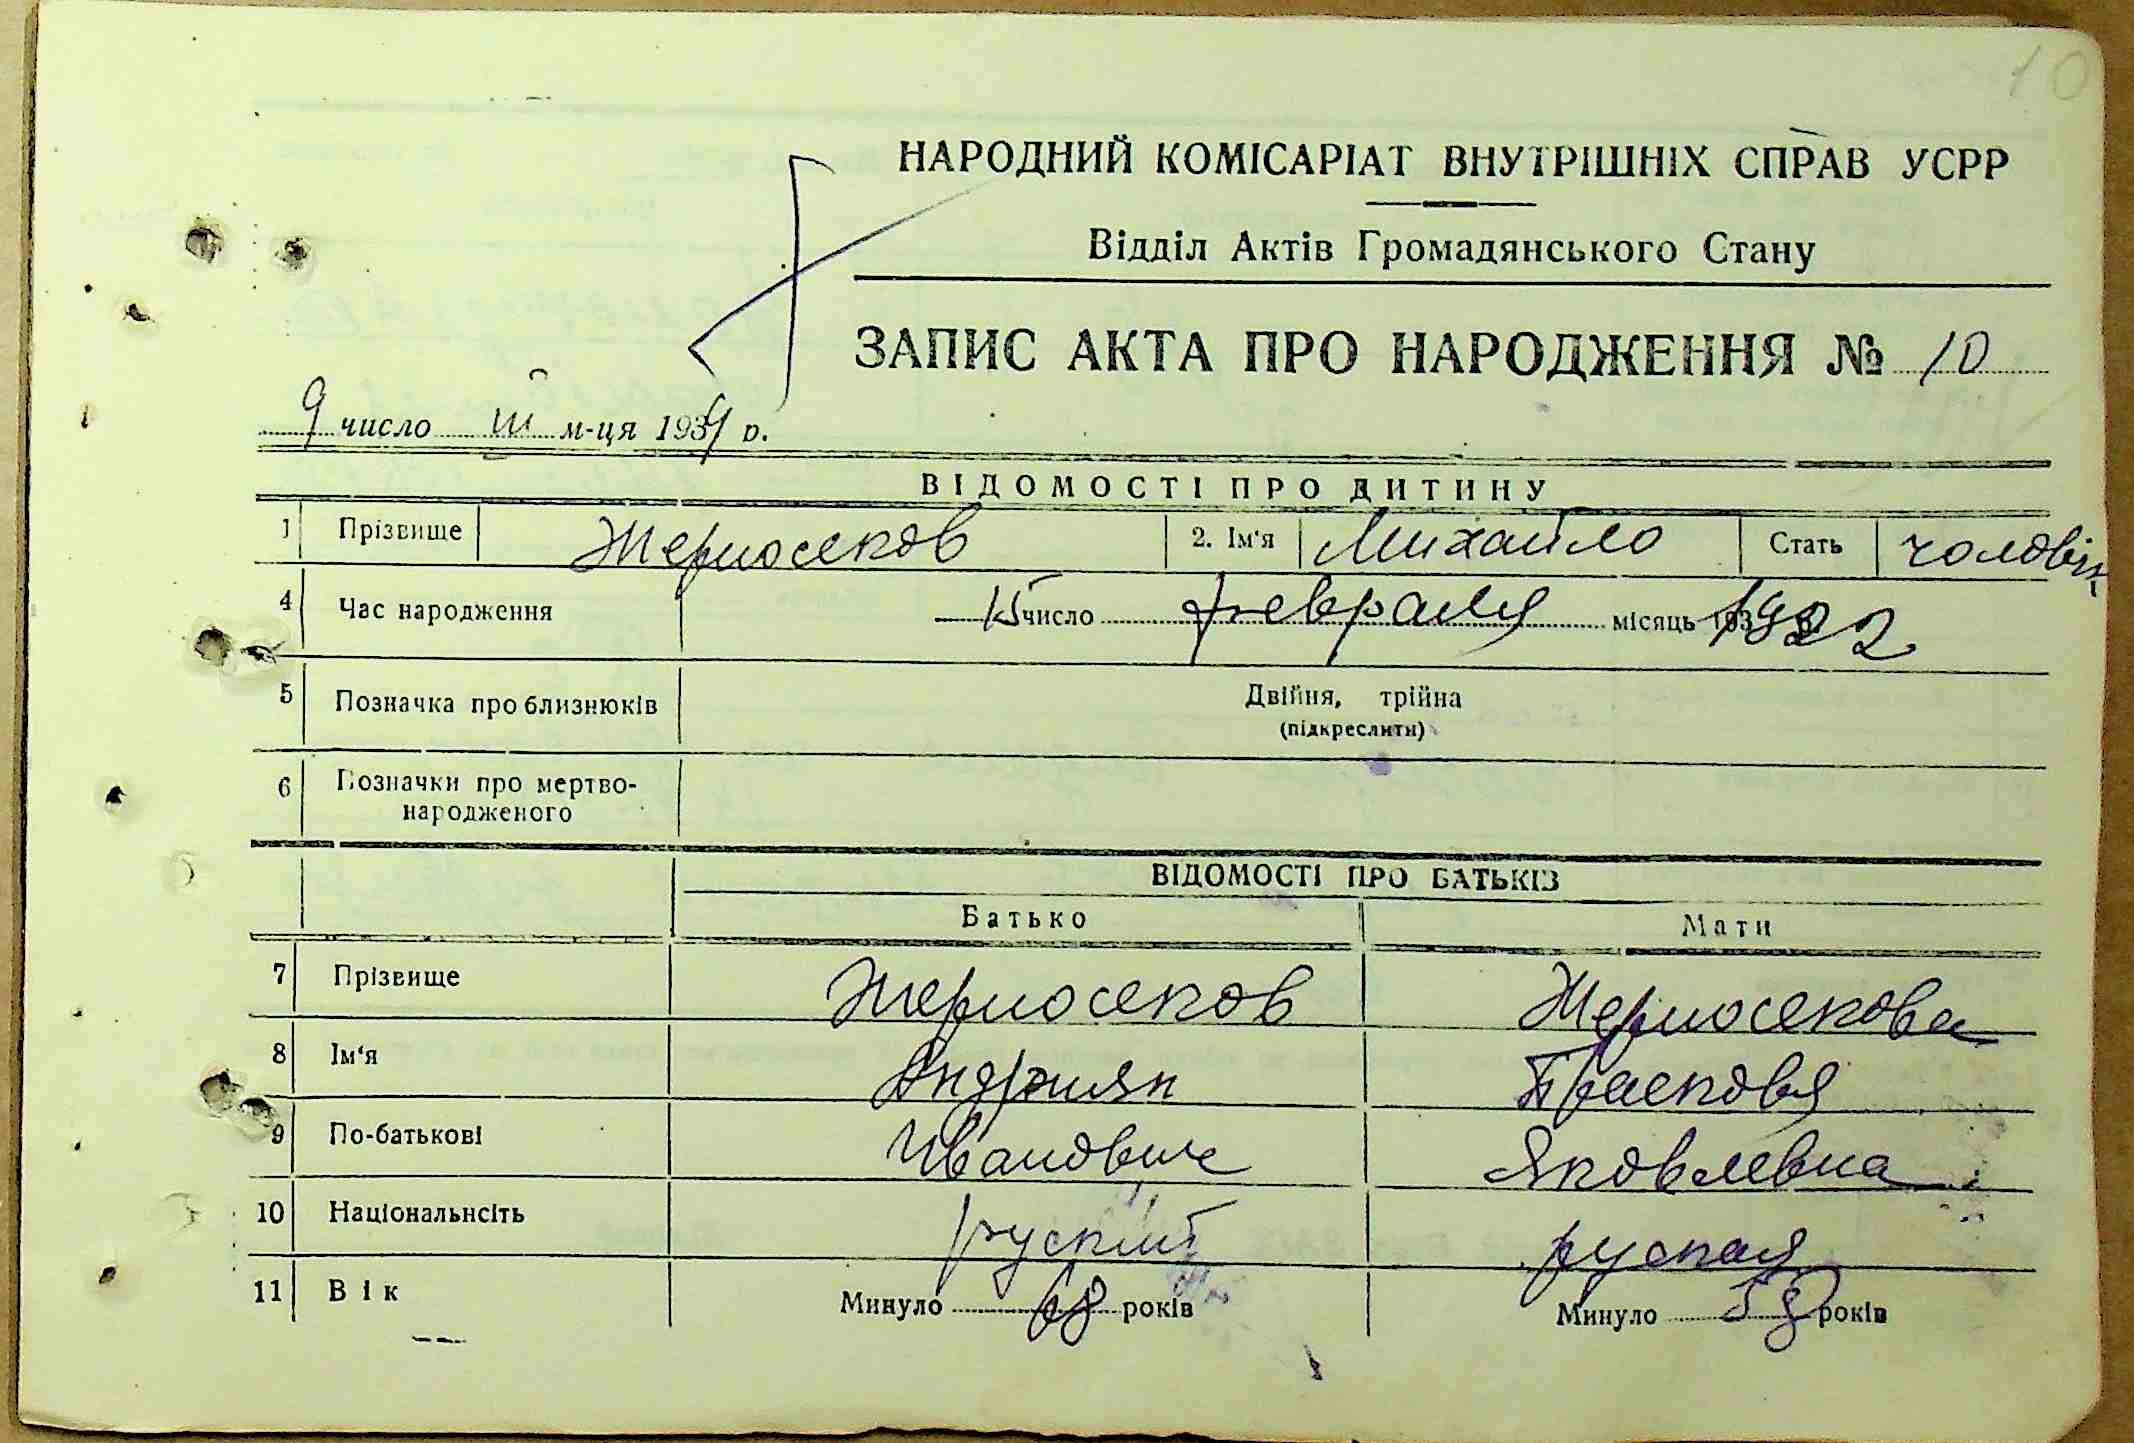 10
НАРОДНИЙ КОМІСАРІАТ ВНУТРІШНІХ СПРАВ УСРР
Відділ Актів Громадянського Стану
ЗАПИС АКТА ПРО НАРОДЖЕННЯ № 10
9 число III м-ця 1934 р.
ВІДОМОСТІ ПРО ДИТИНУ
1 Прізвище Жерносеков 2. Ім'я Михайло Стать чоловік
4 Час народження 15 число февраля місяць 1922
5 Позначка про близнюків Двійня, трійна
(підкреслити)
6 Позначки про мертво-
народженого
ВІДОМОСТІ ПРО БАТЬКІВ
Батько Мати
7 Прізвище Жерносеков Жерносекова
8 Ім'я Андриян Прасковя
9 По-батькові Иванович Яковлевна
10 Національнсіть руский руская
11 Вік Минуло 68 років Минуло 58 років